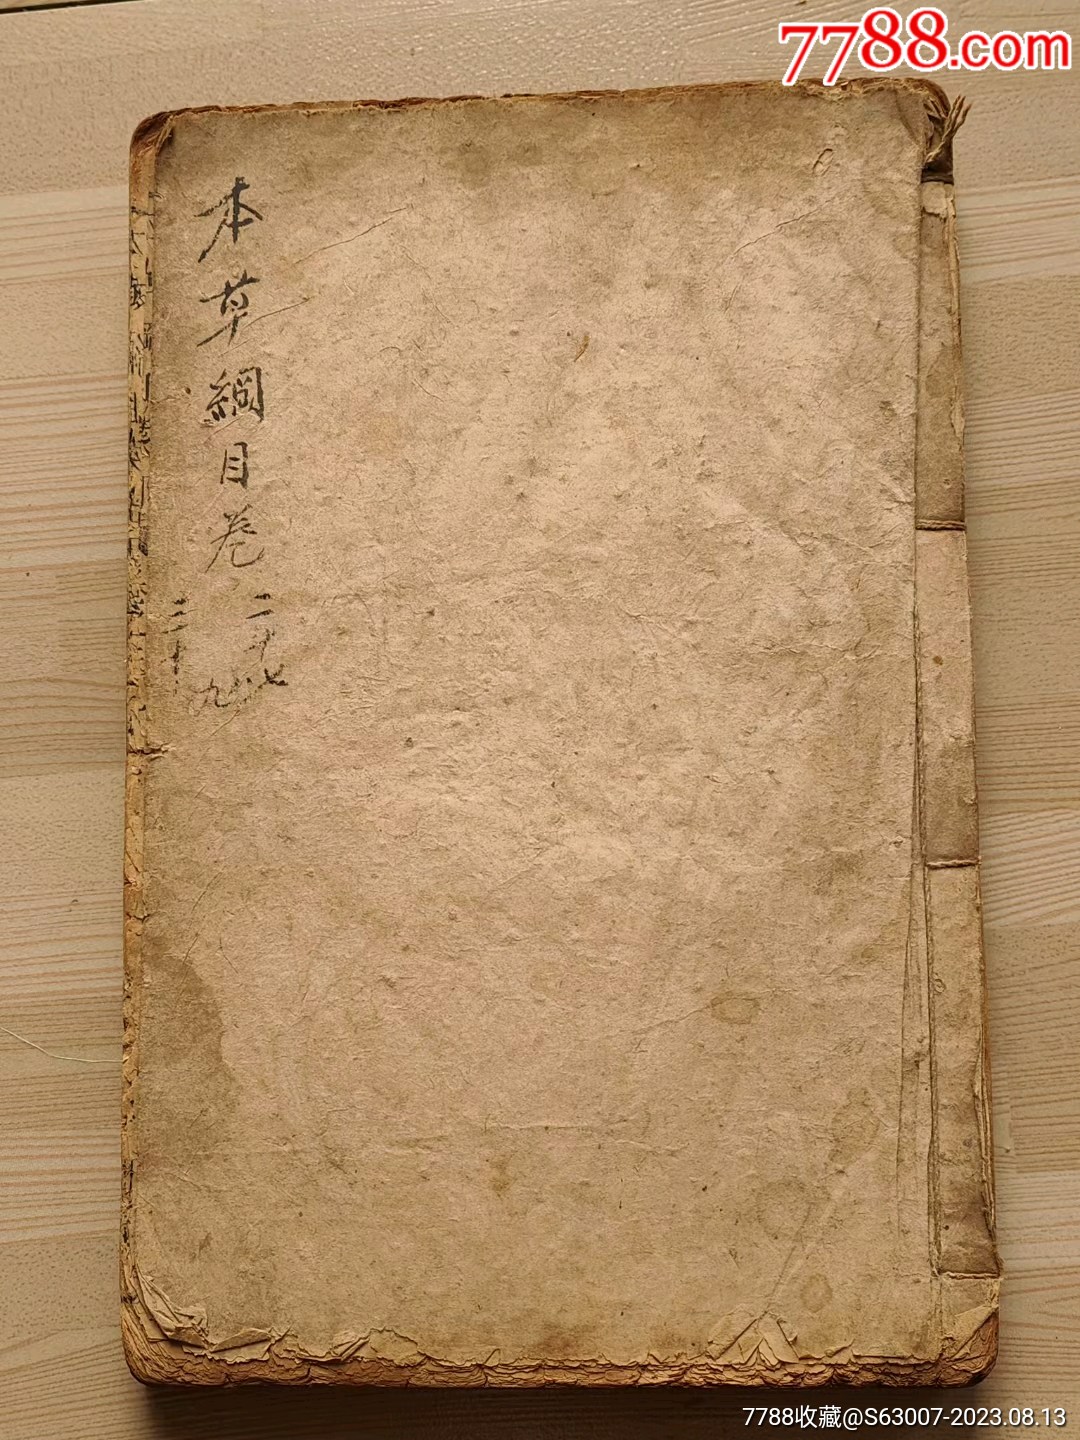 7788.com
本草綱目卷
二十七
二十九
7788收藏@S63007-2023.08.13